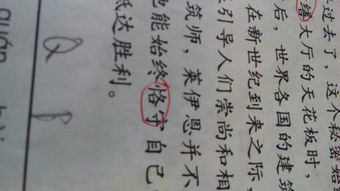 过去了，这个秘密始
缮大厅的天花板时，
后，世界各国的建筑
在新世纪到来之际，
引导人们崇尚和相
筑师，莱伊恩并不
他能始终恪守自己
抵达胜利。
quán